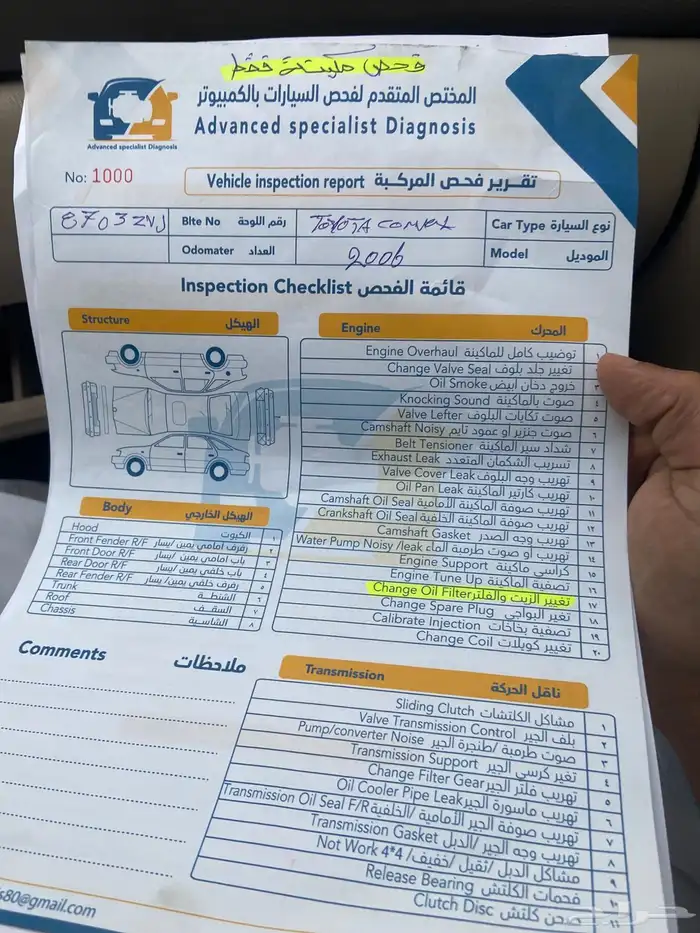 فحص مكينة فقط
المختص المتقدم لفحص السيارات بالكمبيوتر
Advanced specialist Diagnosis
Advanced specialist Diagnosis
No: 1000
Vehicle inspection report تقرير فحص المركبة
8703 ZVJ Blte No رقم اللوحة TOYOTA Car Type نوع السيارة
Odomater العداد 2006 Model الموديل
Inspection Checklist قائمة الفحص
Structure الهيكل
Engine المحرك
Engine Overhaul توضيب كامل للماكينة ١
Change Valve Seal تغيير جلد بلوف
Oil Smoke خروج دخان أبيض ٣
Knocking Sound صوت بالماكينة ٤
Valve Lefter صوت تكايات البلوف ٥
Camshaft Noisy صوت جنزير او عمود تايم ٦
Belt Tensioner شداد سير الماكينة ٧
Exhaust Leak تسريب الشكمان المتعدد ٨
Valve Cover Leak تهريب وجه البلوف ٩
Oil Pan Leak تهريب كارتير الماكينة ١٠
Camshaft Oil Seal تهريب صوفة الماكينة الأمامية ١١
Crankshaft Oil Seal تهريب صوفة الماكينة الخلفية ١٢
Camshaft Gasket تهريب وجه الصدر ١٣
Water Pump Noisy /leak تهريب او صوت طرمبة الماء ١٤
Engine Support كراسي ماكينة ١٥
Engine Tune Up تصفية الماكينة ١٦
Change Oil Filter تغيير الزيت والفلتر ١٧
Change Spare Plug تغير البواجي ١٨
Calibrate Injection تصفية بخاخات ١٩
Change Coil تغيير كويلات ٢٠
Body الهيكل الخارجي
Hood الكبوت ١
Front Fender R/F رفرف امامي يمين /يسار ٢
Front Door R/F باب أمامي يمين /يسار ٣
Rear Door R/F باب خلفي يمين /يسار ٤
Rear Fender R/F رفرف خلفي يمين/ يسار ٥
Trunk الشنطة ٦
Roof السقف ٧
Chassis الشاسية ٨
Comments ملاحظات
Transmission ناقل الحركة
Sliding Clutch مشاكل الكلتشات ١
Valve Transmission Control بلف الجير ٢
Pump/converter Noise صوت طرمبة /طنجرة الجير ٣
Transmission Support تغير كرسي الجير ٤
Change Filter Gear تهريب فلتر الجير ٥
Oil Cooler Pipe Leak تهريب ماسورة الجير ٦
Transmission Oil Seal F/R تهريب صوفة الجير الأمامية /الخلفية ٧
Transmission Gasket تهريب وجه الجير /الدبل ٨
Not Work 4*4 مشاكل الدبل /ثقيل /خفيف ٩
Release Bearing فحمات الكلتش ١٠
Clutch Disc صحن كلتش ١١
s80@gmail.com
حراج